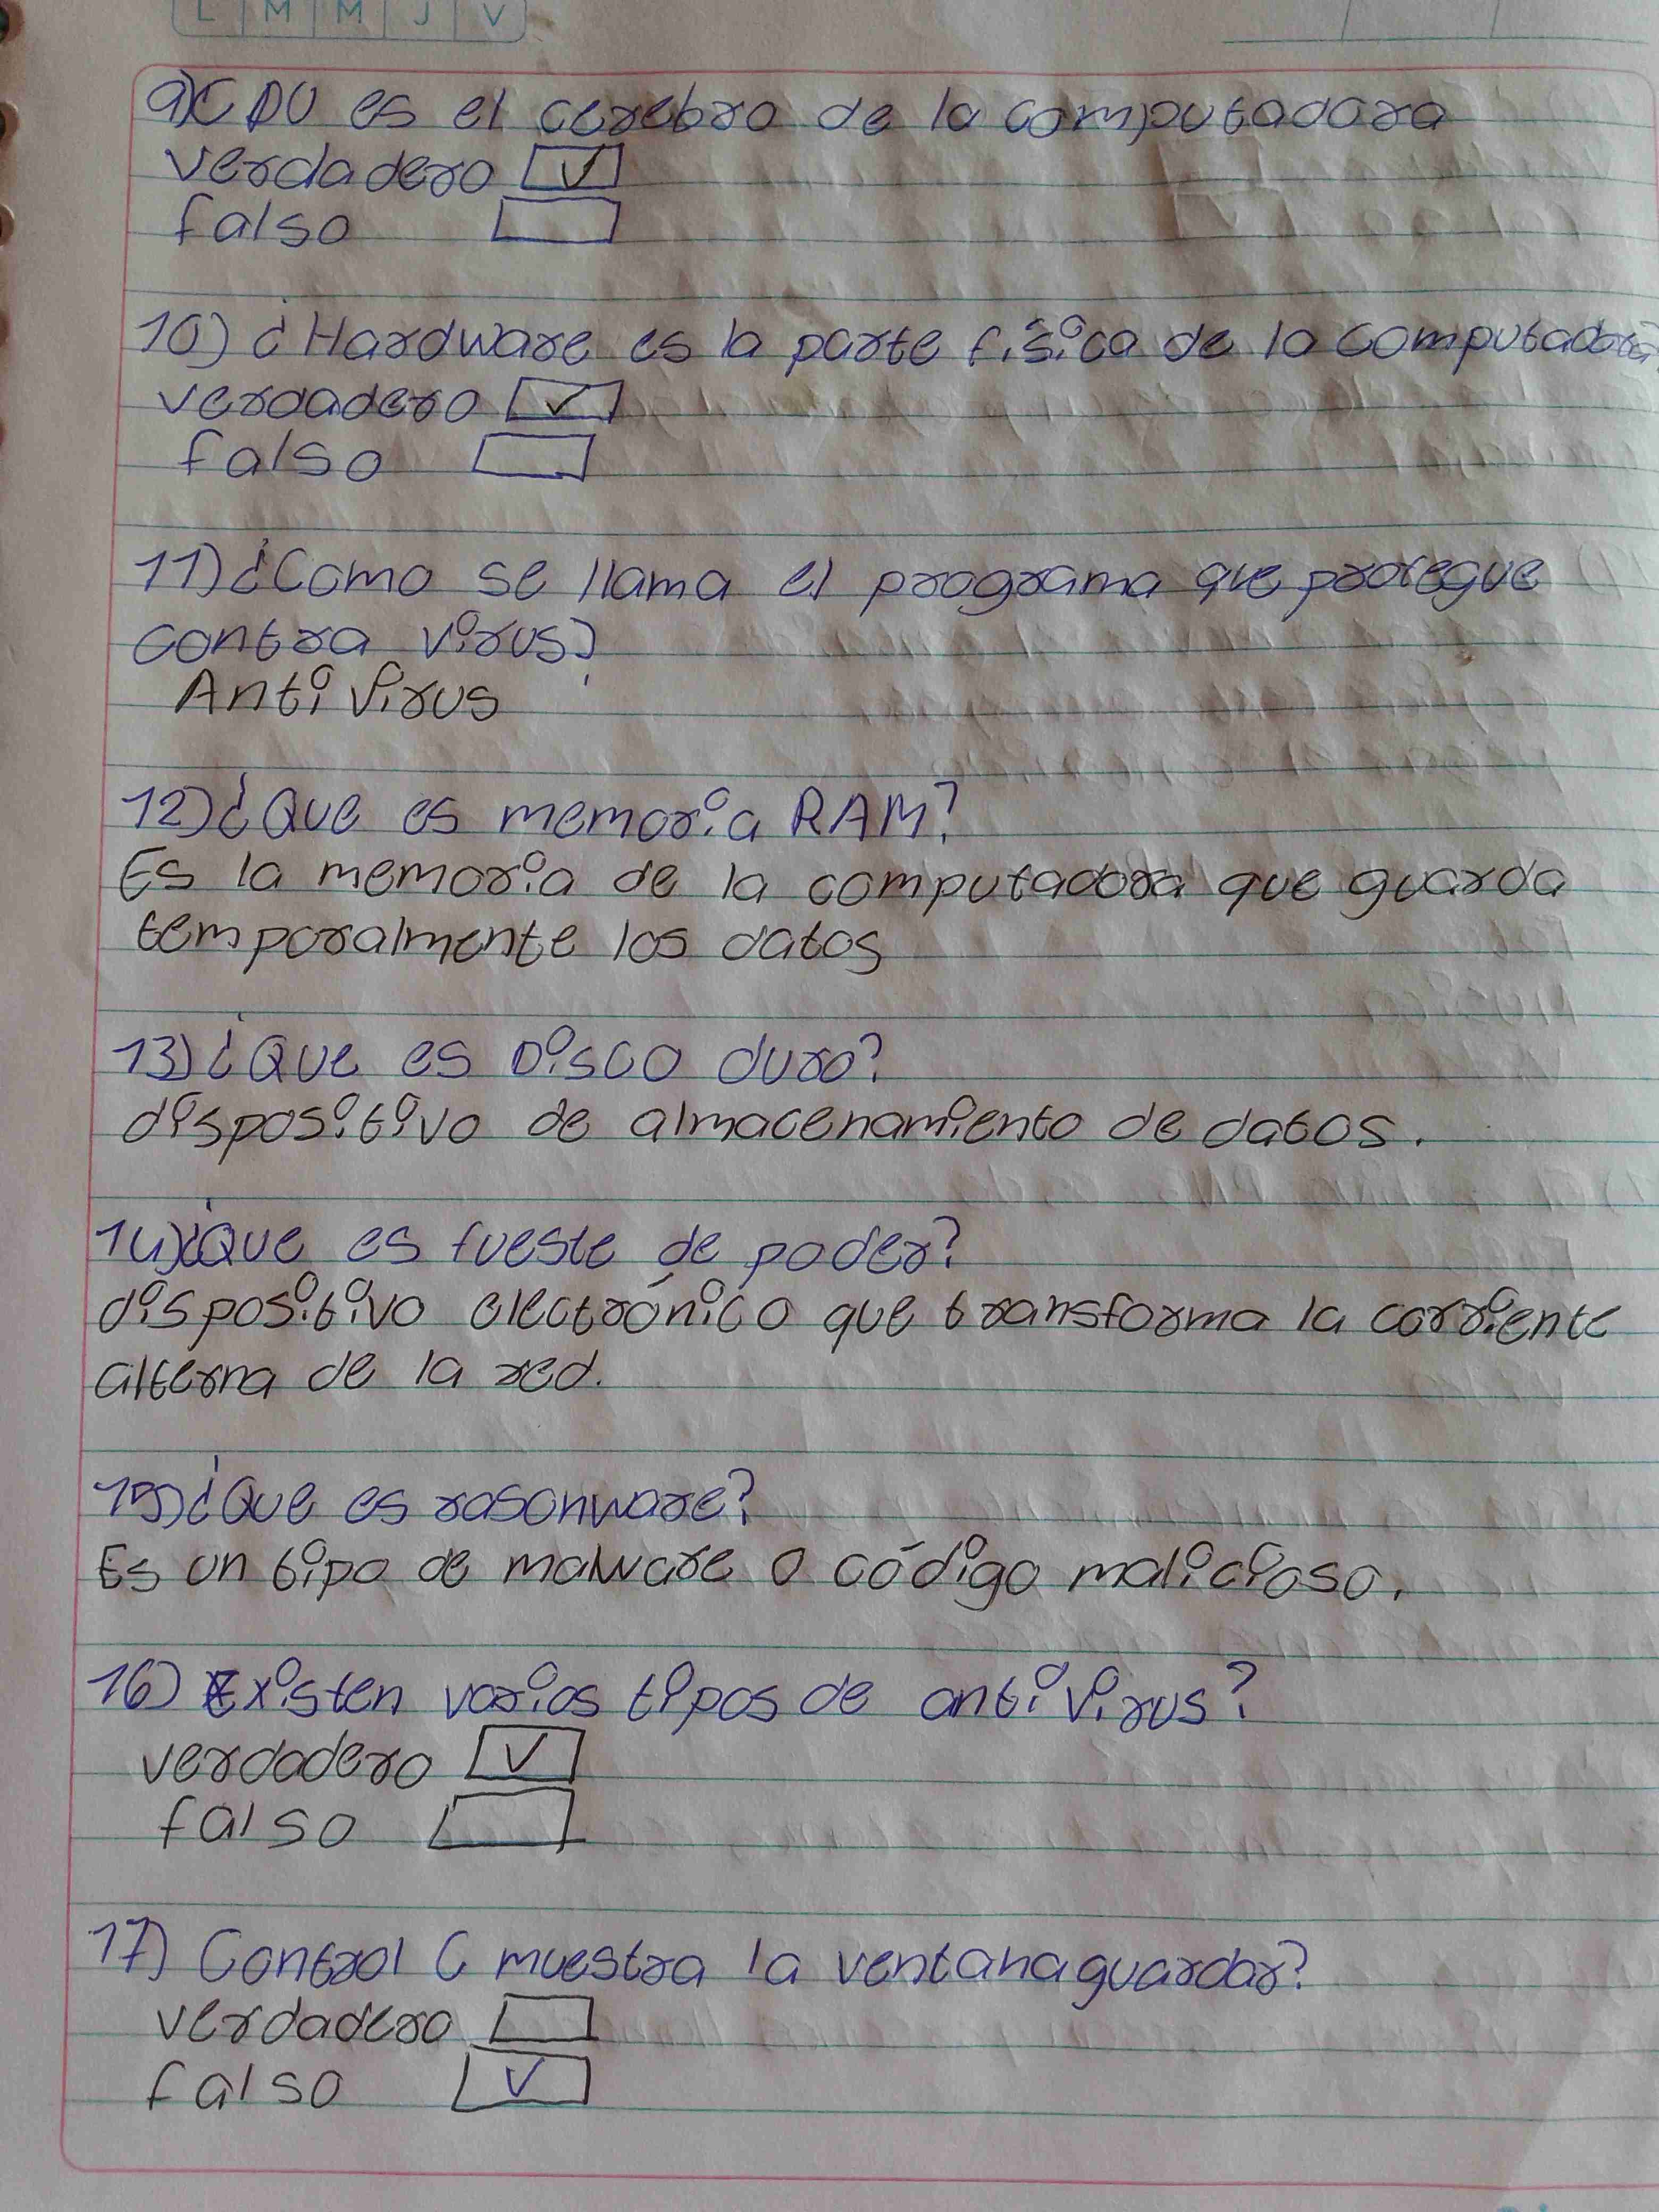 L M M J V
9) CPU es el cerebro de la computadara
verdadero ✓
falso
10) ¿Hardware es la parte física de la computadora?
verdadero ✓
falso
11) ¿Como se llama el programa que protegue
contra virus?
Anti virus
12) ¿Que es memoria RAM?
Es la memoria de la computadora que guarda
temporalmente los datos
13) ¿Que es Disco duro?
dispositivo de almacenamiento de datos.
14) ¿Que es fueste de poder?
dispositivo electrónico que transforma la corriente
alterna de la red.
15) ¿Que es rasonware?
Es un tipo de malware o código malicioso.
16) Existen varios tipos de anti virus?
verdadero ✓
falso
17) Control C muestra la ventana guardar?
verdadero
falso ✓